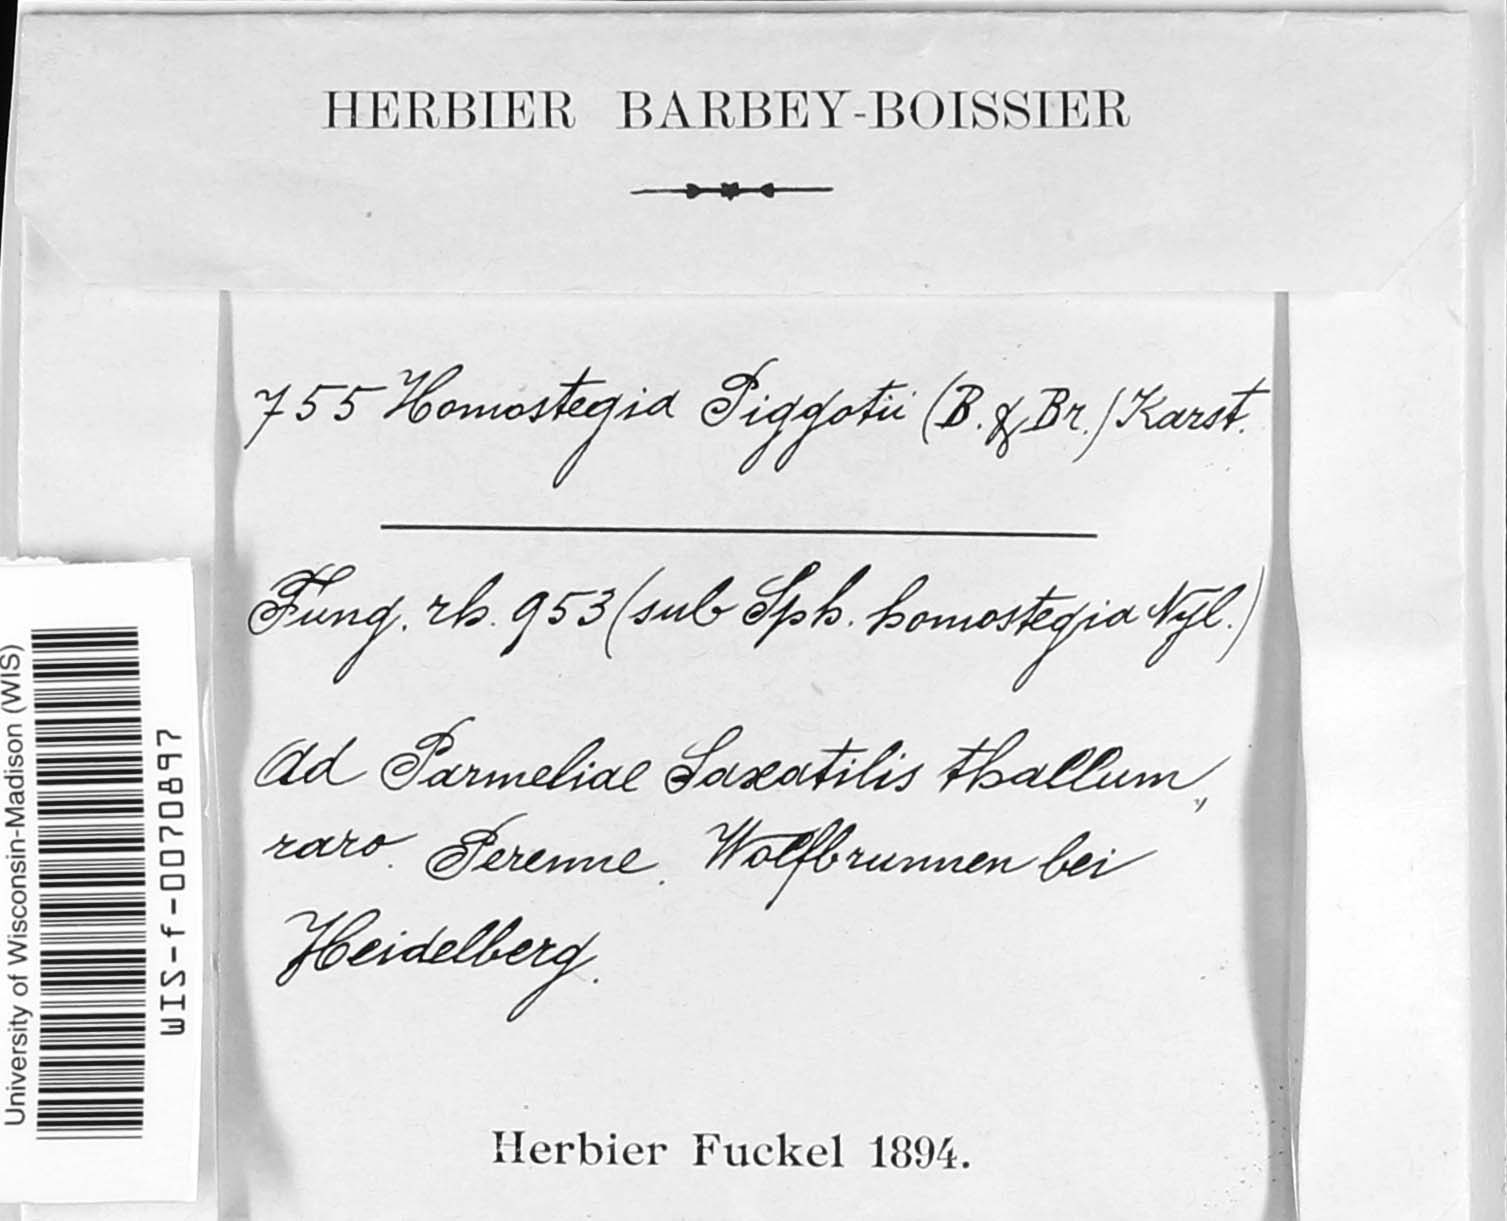 HERBIER BARBEY-BOISSIER
755 Homostegia Piggotii (B. & Br.) Karst.
Fung. rh. 953 (sub Sph. homostegia Nyl.)
Ad Parmeliae Saxatilis thallum,
raro. Perenne. Wolfbrunnen bei
Heidelberg.
Herbier Fuckel 1894.
University of Wisconsin-Madison (WIS)
WIS-f-0070897